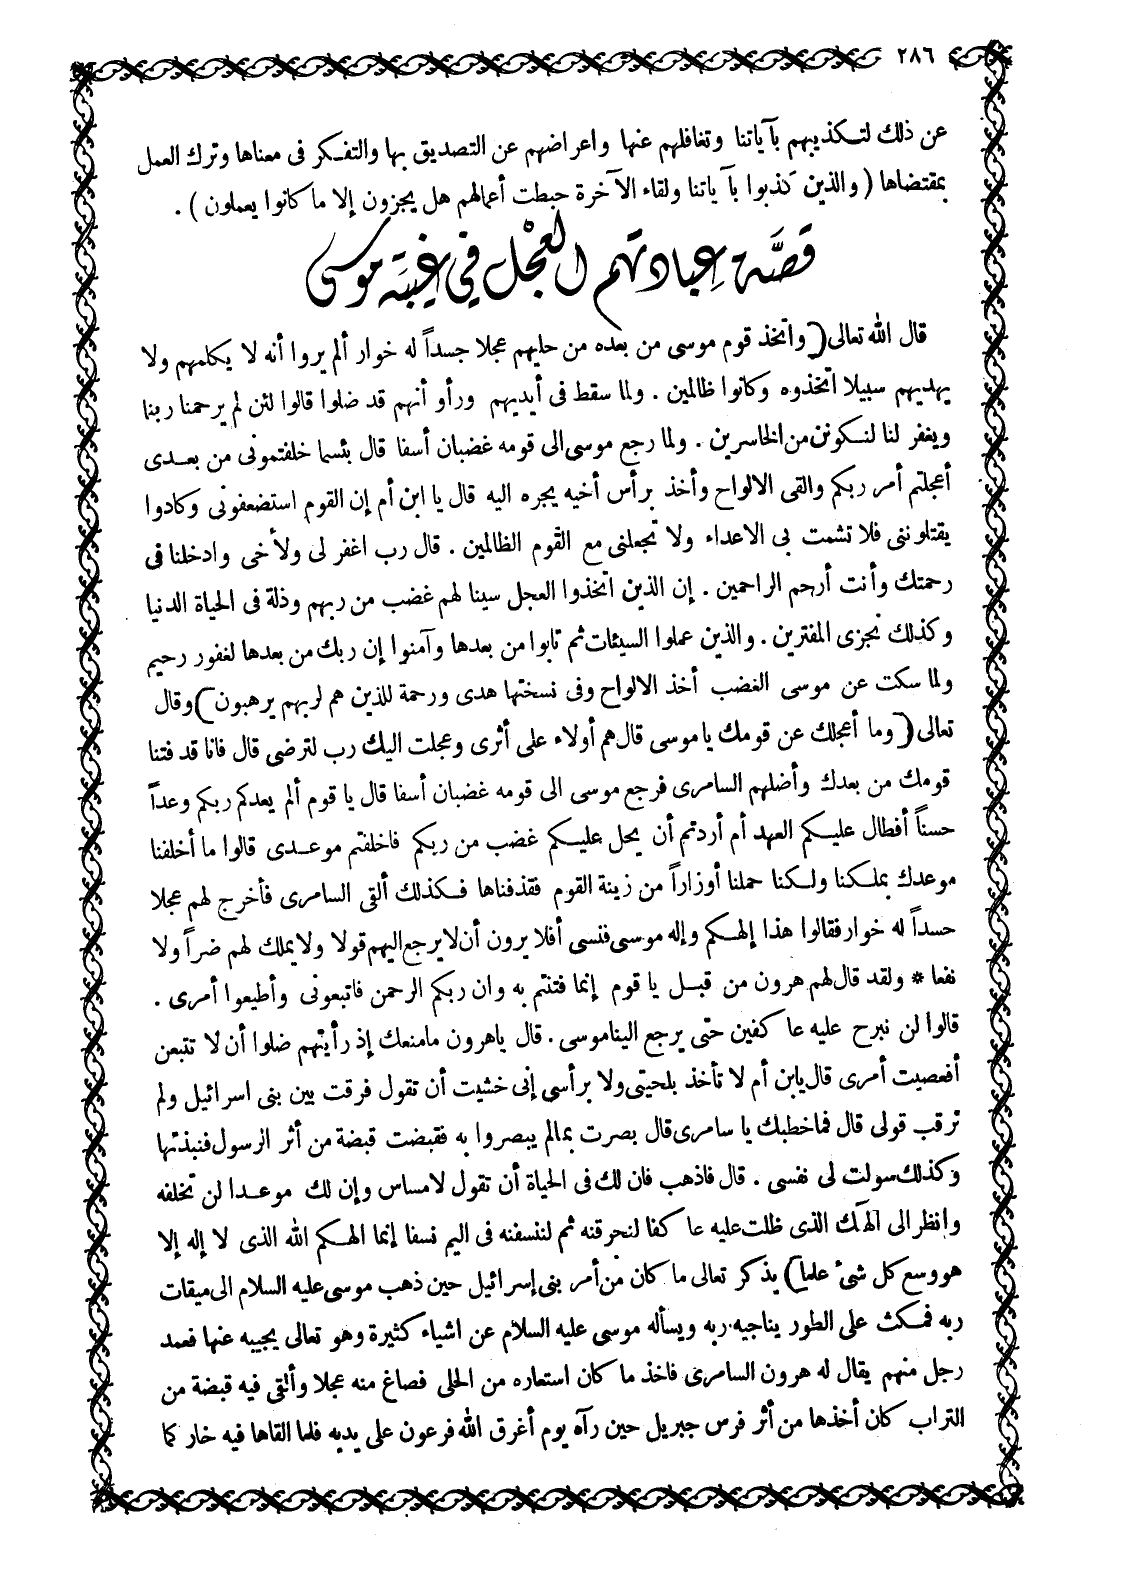 ٢٨٦
عن ذلك لتكذيبهم بآياتنا وتغافلهم عنها واعراضهم عن التصديق بها والتفكر فى معناها وترك العمل
بمقتضاها ( والذين كذبوا بآياتنا ولقاء الآخرة حبطت أعمالهم هل يجزون إلا ما كانوا يعملون ) .
قصَّة عِبادتهم العِجْل في غيبَة موسى
قال الله تعالى ( واتخذ قوم موسى من بعده من حليهم عجلا جسداً له خوار ألم يروا أنه لا يكلمهم ولا
يهديهم سبيلا اتخذوه وكانوا ظالمين . ولما سقط فى أيديهم ورأو أنهم قد ضلوا قالوا لئن لم يرحمنا ربنا
ويغفر لنا لنكونن من الخاسرين . ولما رجع موسى الى قومه غضبان أسفا قال بئسما خلفتمونى من بعدى
أعجلتم أمر ربكم والقى الالواح وأخذ برأس أخيه يجره اليه قال يا ابن أم إن القوم استضعفونى وكادوا
يقتلوننى فلا تشمت بى الاعداء ولا تجعلنى مع القوم الظالمين . قال رب اغفر لى ولأخى وادخلنا فى
رحمتك وأنت أرحم الراحمين . إن الذين اتخذوا العجل سينا لهم غضب من ربهم وذلة فى الحياة الدنيا
وكذلك نجزى المفترين . والذين عملوا السيئات ثم تابوا من بعدها وآمنوا إن ربك من بعدها لغفور رحيم
ولما سكت عن موسى الغضب أخذ الالواح وفى نسختها هدى ورحمة للذين هم لربهم يرهبون ) وقال
تعالى ( وما أعجلك عن قومك يا موسى قال هم أولاء على أثرى وعجلت اليك رب لترضى قال فانا قد فتنا
قومك من بعدك وأضلهم السامرى فرجع موسى الى قومه غضبان أسفا قال يا قوم ألم يعدكم ربكم وعداً
حسناً أفطال عليكم العهد أم أردتم أن يحل عليكم غضب من ربكم فاخلفتم موعدى قالوا ما أخلفنا
موعدك بملكنا ولكنا حملنا أوزاراً من زينة القوم فقذفناها فكذلك ألقى السامرى فأخرج لهم عجلا
حسداً له خوار فقالوا هذا إلهكم وإله موسى فنسى أفلا يرون أن لا يرجع اليهم قولا ولا يملك لهم ضراً ولا
نفعا * ولقد قال لهم هرون من قبل يا قوم إنما فتنتم به وان ربكم الرحمن فاتبعونى وأطيعوا أمرى .
قالوا لن نبرح عليه عاكفين حتى يرجع الينا موسى . قال ياهرون مامنعك إذ رأيتهم ضلوا أن لا تتبعن
أفعصيت أمرى قال يابن أم لا تأخذ بلحيتى ولا برأسى إنى خشيت أن تقول فرقت بين بنى اسرائيل ولم
ترقب قولى قال فماخطبك يا سامرى قال بصرت بمالم يبصروا به فقبضت قبضة من أثر الرسول فنبذتها
وكذلك سولت لى نفسى . قال فاذهب فان لك فى الحياة أن تقول لامساس وإن لك موعدا لن تخلفه
وانظر الى الهك الذى ظلت عليه عاكفا لنحرقنه ثم لننسفنه فى اليم نسفا إنما الهكم الله الذى لا إله إلا
هو وسع كل شئ علما ) يذكر تعالى ما كان من أمر بنى إسرائيل حين ذهب موسى عليه السلام الى ميقات
ربه فمكث على الطور يناجيه ربه ويسأله موسى عليه السلام عن اشياء كثيرة وهو تعالى يجيبه عنها فعمد
رجل منهم يقال له هرون السامرى فاخذ ما كان استعاره من الحلى فصاغ منه عجلا وألقى فيه قبضة من
التراب كان أخذها من أثر فرس جبريل حين رآه يوم أغرق الله فرعون على يديه فلما القاها فيه خار كما